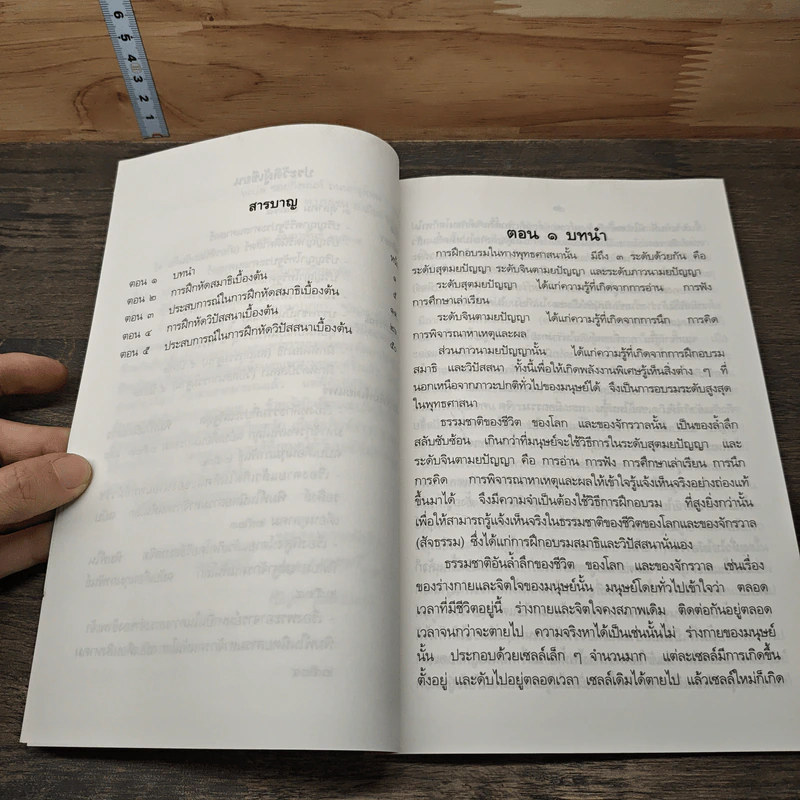 6
5
4
3
2
1
สารบาญ
ตอน ๑ บทนำ ๑
ตอน ๒ การฝึกหัดสมาธิเบื้องต้น ๙
ตอน ๓ ประสบการณ์ในการฝึกหัดสมาธิเบื้องต้น
ตอน ๔ การฝึกหัดวิปัสสนาเบื้องต้น
ตอน ๕ ประสบการณ์ในการฝึกหัดวิปัสสนาเบื้องต้น ๕๐
ตอน ๑ บทนำ
การฝึกอบรมในทางพุทธศาสนานั้น มีถึง ๓ ระดับด้วยกัน คือ
ระดับสุตมยปัญญา ระดับจินตามยปัญญา และระดับภาวนามยปัญญา
ระดับสุตมยปัญญา ได้แก่ความรู้ที่เกิดจากการอ่าน การฟัง
การศึกษาเล่าเรียน
ระดับจินตามยปัญญา ได้แก่ความรู้ที่เกิดจากการนึก การคิด
การพิจารณาหาเหตุและผล
ส่วนภาวนามยปัญญานั้น ได้แก่ความรู้ที่เกิดจากการฝึกอบรม
สมาธิ และวิปัสสนา ทั้งนี้เพื่อให้เกิดพลังงานพิเศษรู้เห็นสิ่งต่าง ๆ ที่
นอกเหนือจากภาวะปกติทั่วไปของมนุษย์ได้ จึงเป็นการอบรมระดับสูงสุด
ในพุทธศาสนา
ธรรมชาติของชีวิต ของโลก และของจักรวาลนั้น เป็นของล้ำลึก
สลับซับซ้อน เกินกว่าที่มนุษย์จะใช้วิธีการในระดับสุตมยปัญญา และ
ระดับจินตามยปัญญา คือ การอ่าน การฟัง การศึกษาเล่าเรียน การนึก
การคิด การพิจารณาหาเหตุและผลให้เข้าใจรู้แจ้งเห็นจริงอย่างถ่องแท้
ขึ้นมาได้ จึงมีความจำเป็นต้องใช้วิธีการฝึกอบรม ที่สูงยิ่งกว่านั้น
เพื่อให้สามารถรู้แจ้งเห็นจริงในธรรมชาติของชีวิตของโลกและของจักรวาล
(สัจธรรม) ซึ่งได้แก่การฝึกอบรมสมาธิและวิปัสสนานั่นเอง
ธรรมชาติอันล้ำลึกของชีวิต ของโลก และของจักรวาล เช่นเรื่อง
ของร่างกายและจิตใจของมนุษย์นั้น มนุษย์โดยทั่วไปเข้าใจว่า ตลอด
เวลาที่มีชีวิตอยู่นี้ ร่างกายและจิตใจคงสภาพเดิม ติดต่อกันอยู่ตลอด
เวลาจนกว่าจะตายไป ความจริงหาได้เป็นเช่นนั้นไม่ ร่างกายของมนุษย์
นั้น ประกอบด้วยเซลล์เล็ก ๆ จำนวนมาก แต่ละเซลล์มีการเกิดขึ้น
ตั้งอยู่ และดับไปอยู่ตลอดเวลา เซลล์เดิมได้ตายไป แล้วเซลล์ใหม่ก็เกิด